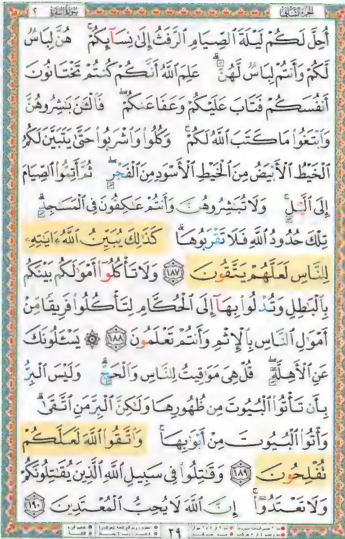 الجزء الثاني سورة البقرة ٢
أُحِلَّ لَكُمْ لَيْلَةَ ٱلصِّيَامِ ٱلرَّفَثُ إِلَىٰ نِسَآئِكُمْ ۚ هُنَّ لِبَاسٌ
لَّكُمْ وَأَنتُمْ لِبَاسٌ لَّهُنَّ ۗ عَلِمَ ٱللَّهُ أَنَّكُمْ كُنتُمْ تَخْتَانُونَ
أَنفُسَكُمْ فَتَابَ عَلَيْكُمْ وَعَفَا عَنكُمْ ۖ فَٱلْـَٰٔنَ بَـٰشِرُوهُنَّ
وَٱبْتَغُوا۟ مَا كَتَبَ ٱللَّهُ لَكُمْ ۚ وَكُلُوا۟ وَٱشْرَبُوا۟ حَتَّىٰ يَتَبَيَّنَ لَكُمُ
ٱلْخَيْطُ ٱلْأَبْيَضُ مِنَ ٱلْخَيْطِ ٱلْأَسْوَدِ مِنَ ٱلْفَجْرِ ۖ ثُمَّ أَتِمُّوا۟ ٱلصِّيَامَ
إِلَى ٱلَّيْلِ ۚ وَلَا تُبَـٰشِرُوهُنَّ وَأَنتُمْ عَـٰكِفُونَ فِى ٱلْمَسَـٰجِدِ ۗ
تِلْكَ حُدُودُ ٱللَّهِ فَلَا تَقْرَبُوهَا ۗ كَذَٰلِكَ يُبَيِّنُ ٱللَّهُ ءَايَـٰتِهِۦ
لِلنَّاسِ لَعَلَّهُمْ يَتَّقُونَ ١٨٧ وَلَا تَأْكُلُوٓا۟ أَمْوَٰلَكُم بَيْنَكُم
بِٱلْبَـٰطِلِ وَتُدْلُوا۟ بِهَآ إِلَى ٱلْحُكَّامِ لِتَأْكُلُوا۟ فَرِيقًا مِّنْ
أَمْوَٰلِ ٱلنَّاسِ بِٱلْإِثْمِ وَأَنتُمْ تَعْلَمُونَ ١٨٨ ۞ يَسْـَٔلُونَكَ
عَنِ ٱلْأَهِلَّةِ ۖ قُلْ هِىَ مَوَٰقِيتُ لِلنَّاسِ وَٱلْحَجِّ ۗ وَلَيْسَ ٱلْبِرُّ
بِأَن تَأْتُوا۟ ٱلْبُيُوتَ مِن ظُهُورِهَا وَلَـٰكِنَّ ٱلْبِرَّ مَنِ ٱتَّقَىٰ ۗ
وَأْتُوا۟ ٱلْبُيُوتَ مِنْ أَبْوَٰبِهَا ۚ وَٱتَّقُوا۟ ٱللَّهَ لَعَلَّكُمْ
تُفْلِحُونَ ١٨٩ وَقَـٰتِلُوا۟ فِى سَبِيلِ ٱللَّهِ ٱلَّذِينَ يُقَـٰتِلُونَكُمْ
وَلَا تَعْتَدُوٓا۟ ۚ إِنَّ ٱللَّهَ لَا يُحِبُّ ٱلْمُعْتَدِينَ ١٩٠
٢٩